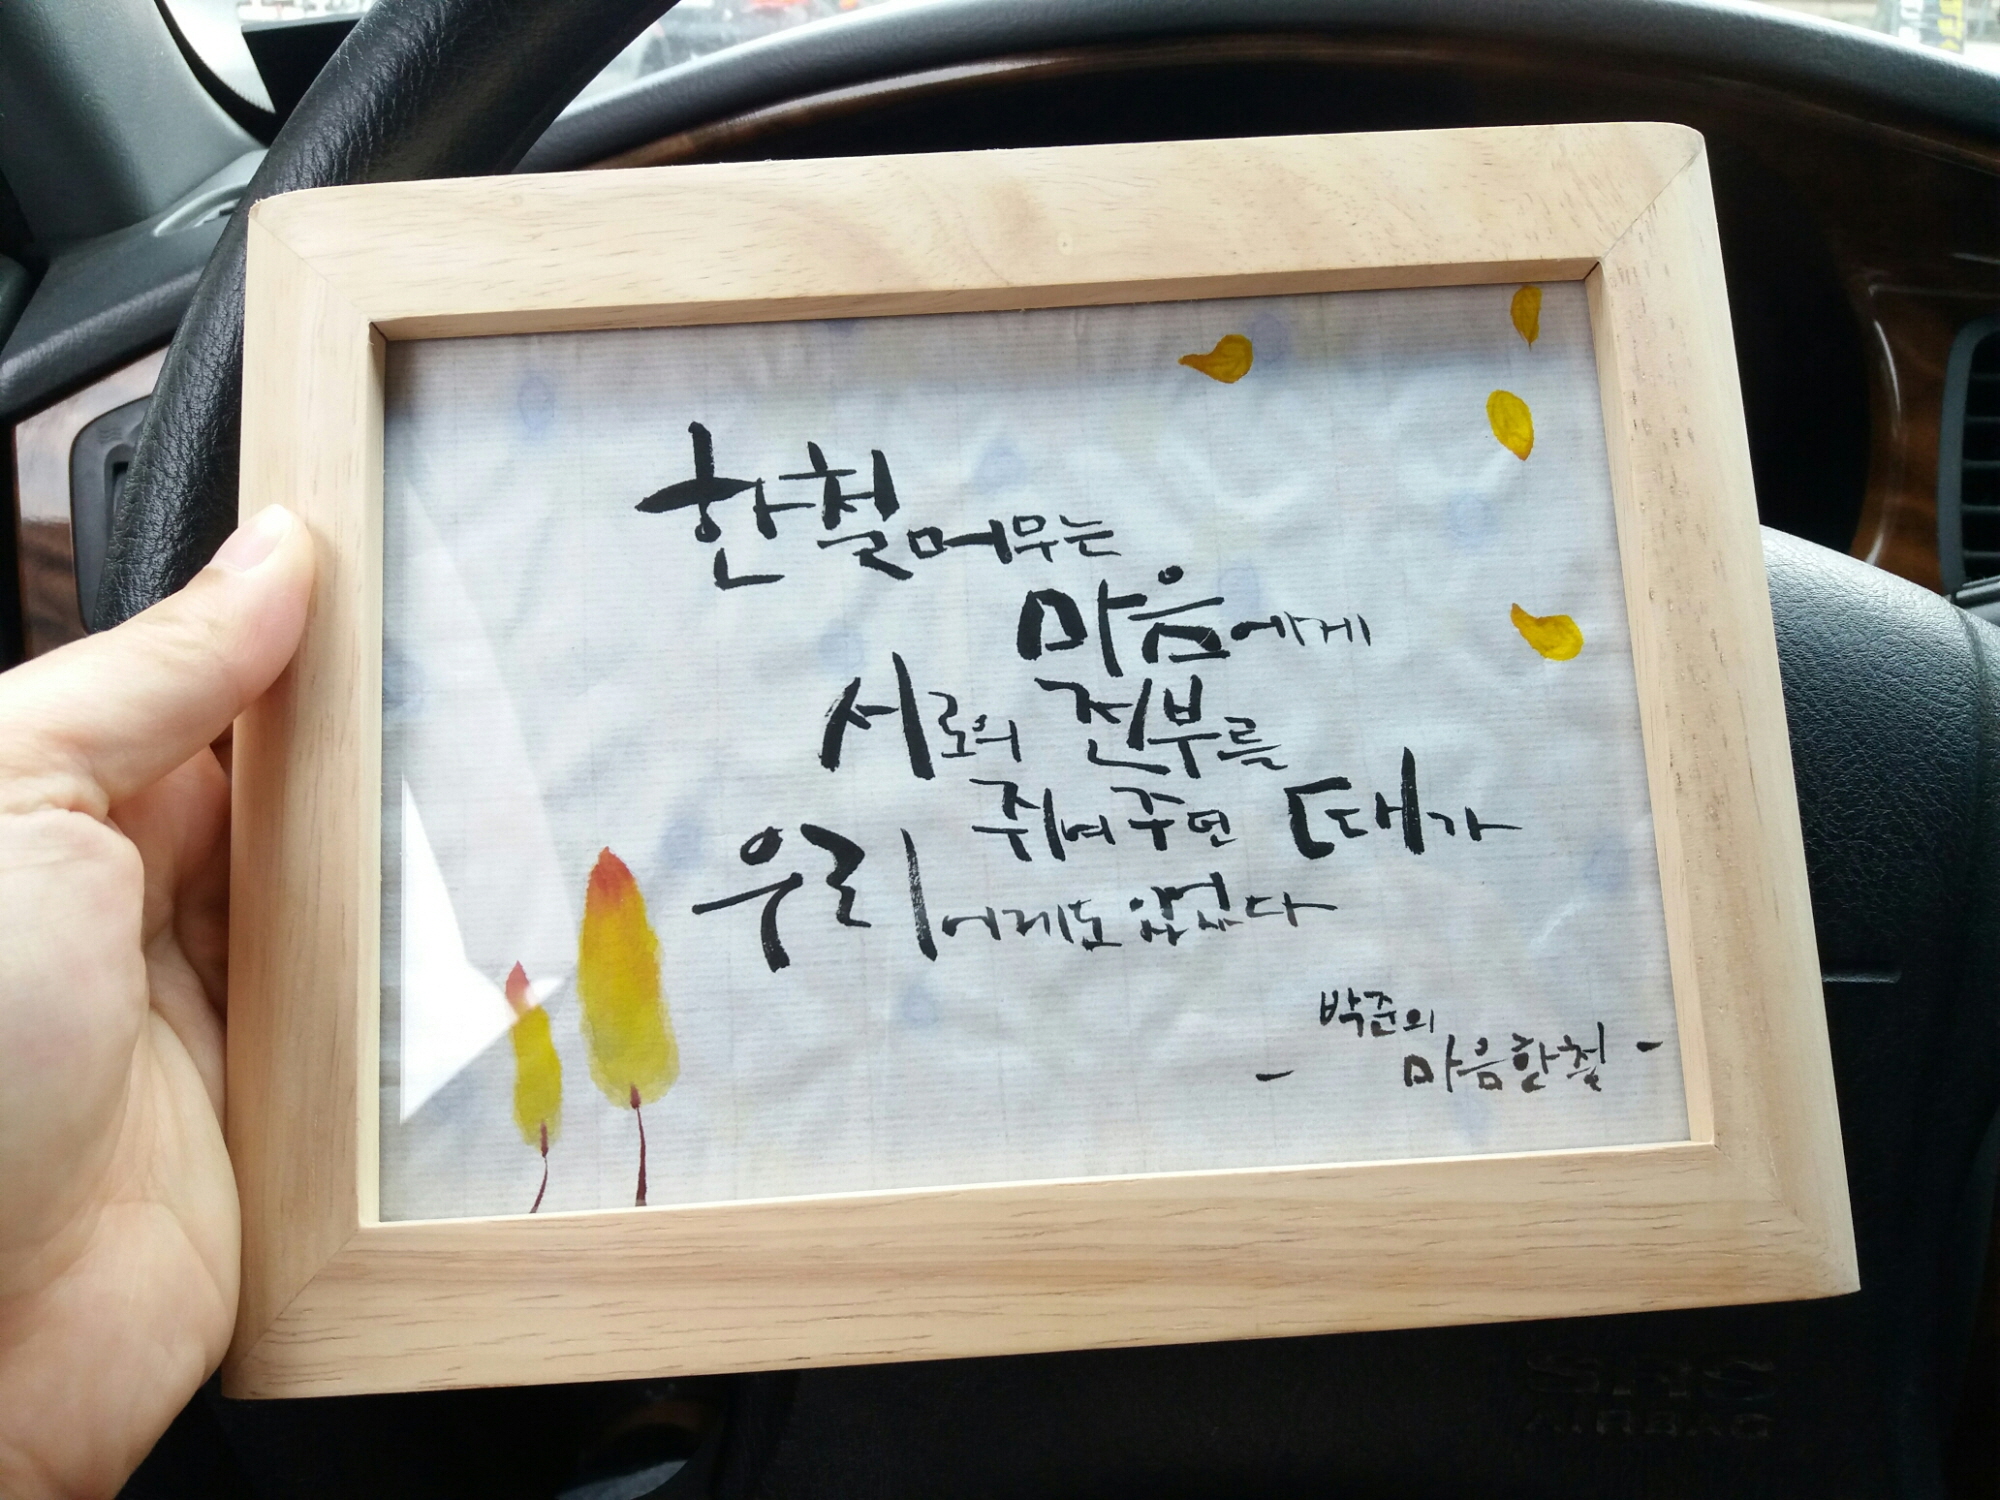 한철 머무는
마음에게
서로의 전부를
쥐여주던 때가
우리에게도 있었다
박준의
- 마음한철 -
SRS
AIRBAG